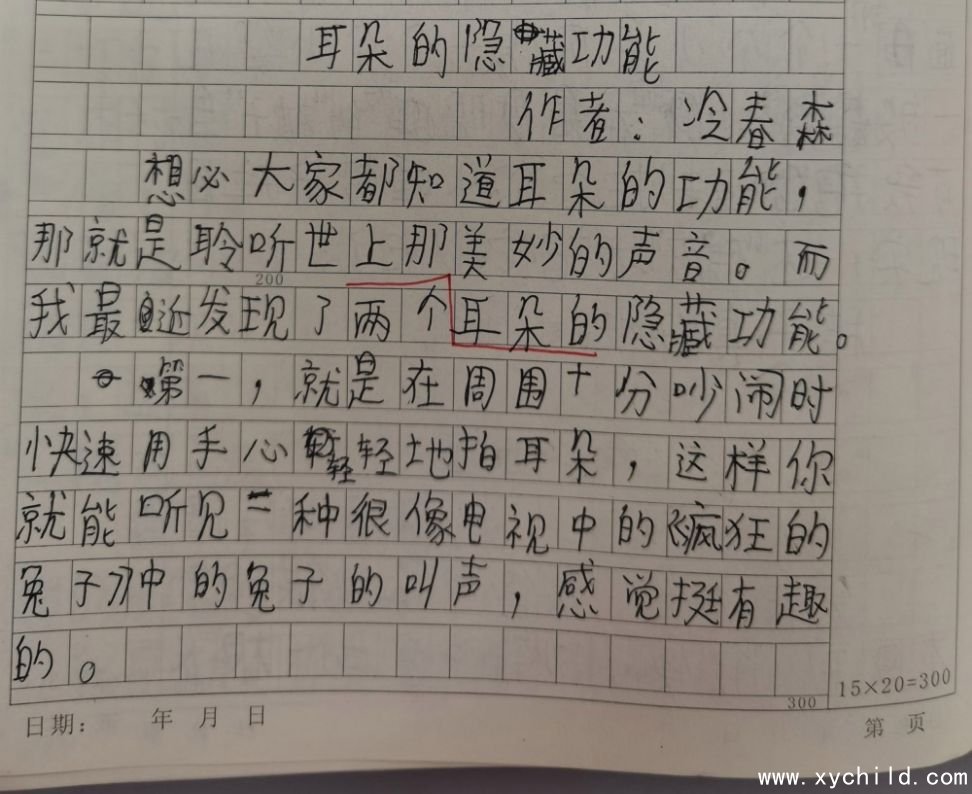 耳朵的隐藏功能
作者：冷春森
想必大家都知道耳朵的功能，
那就是聆听世上那美妙的声音。而
200
我最近发现了两个耳朵的隐藏功能。
第一，就是在周围十分吵闹时
快速用手心轻轻地拍耳朵，这样你
就能听见一种很像电视中的《疯狂的
兔子》中的兔子的叫声，感觉挺有趣
的。
300
15×20=300
日期： 年 月 日
第 页
www.xychild.com